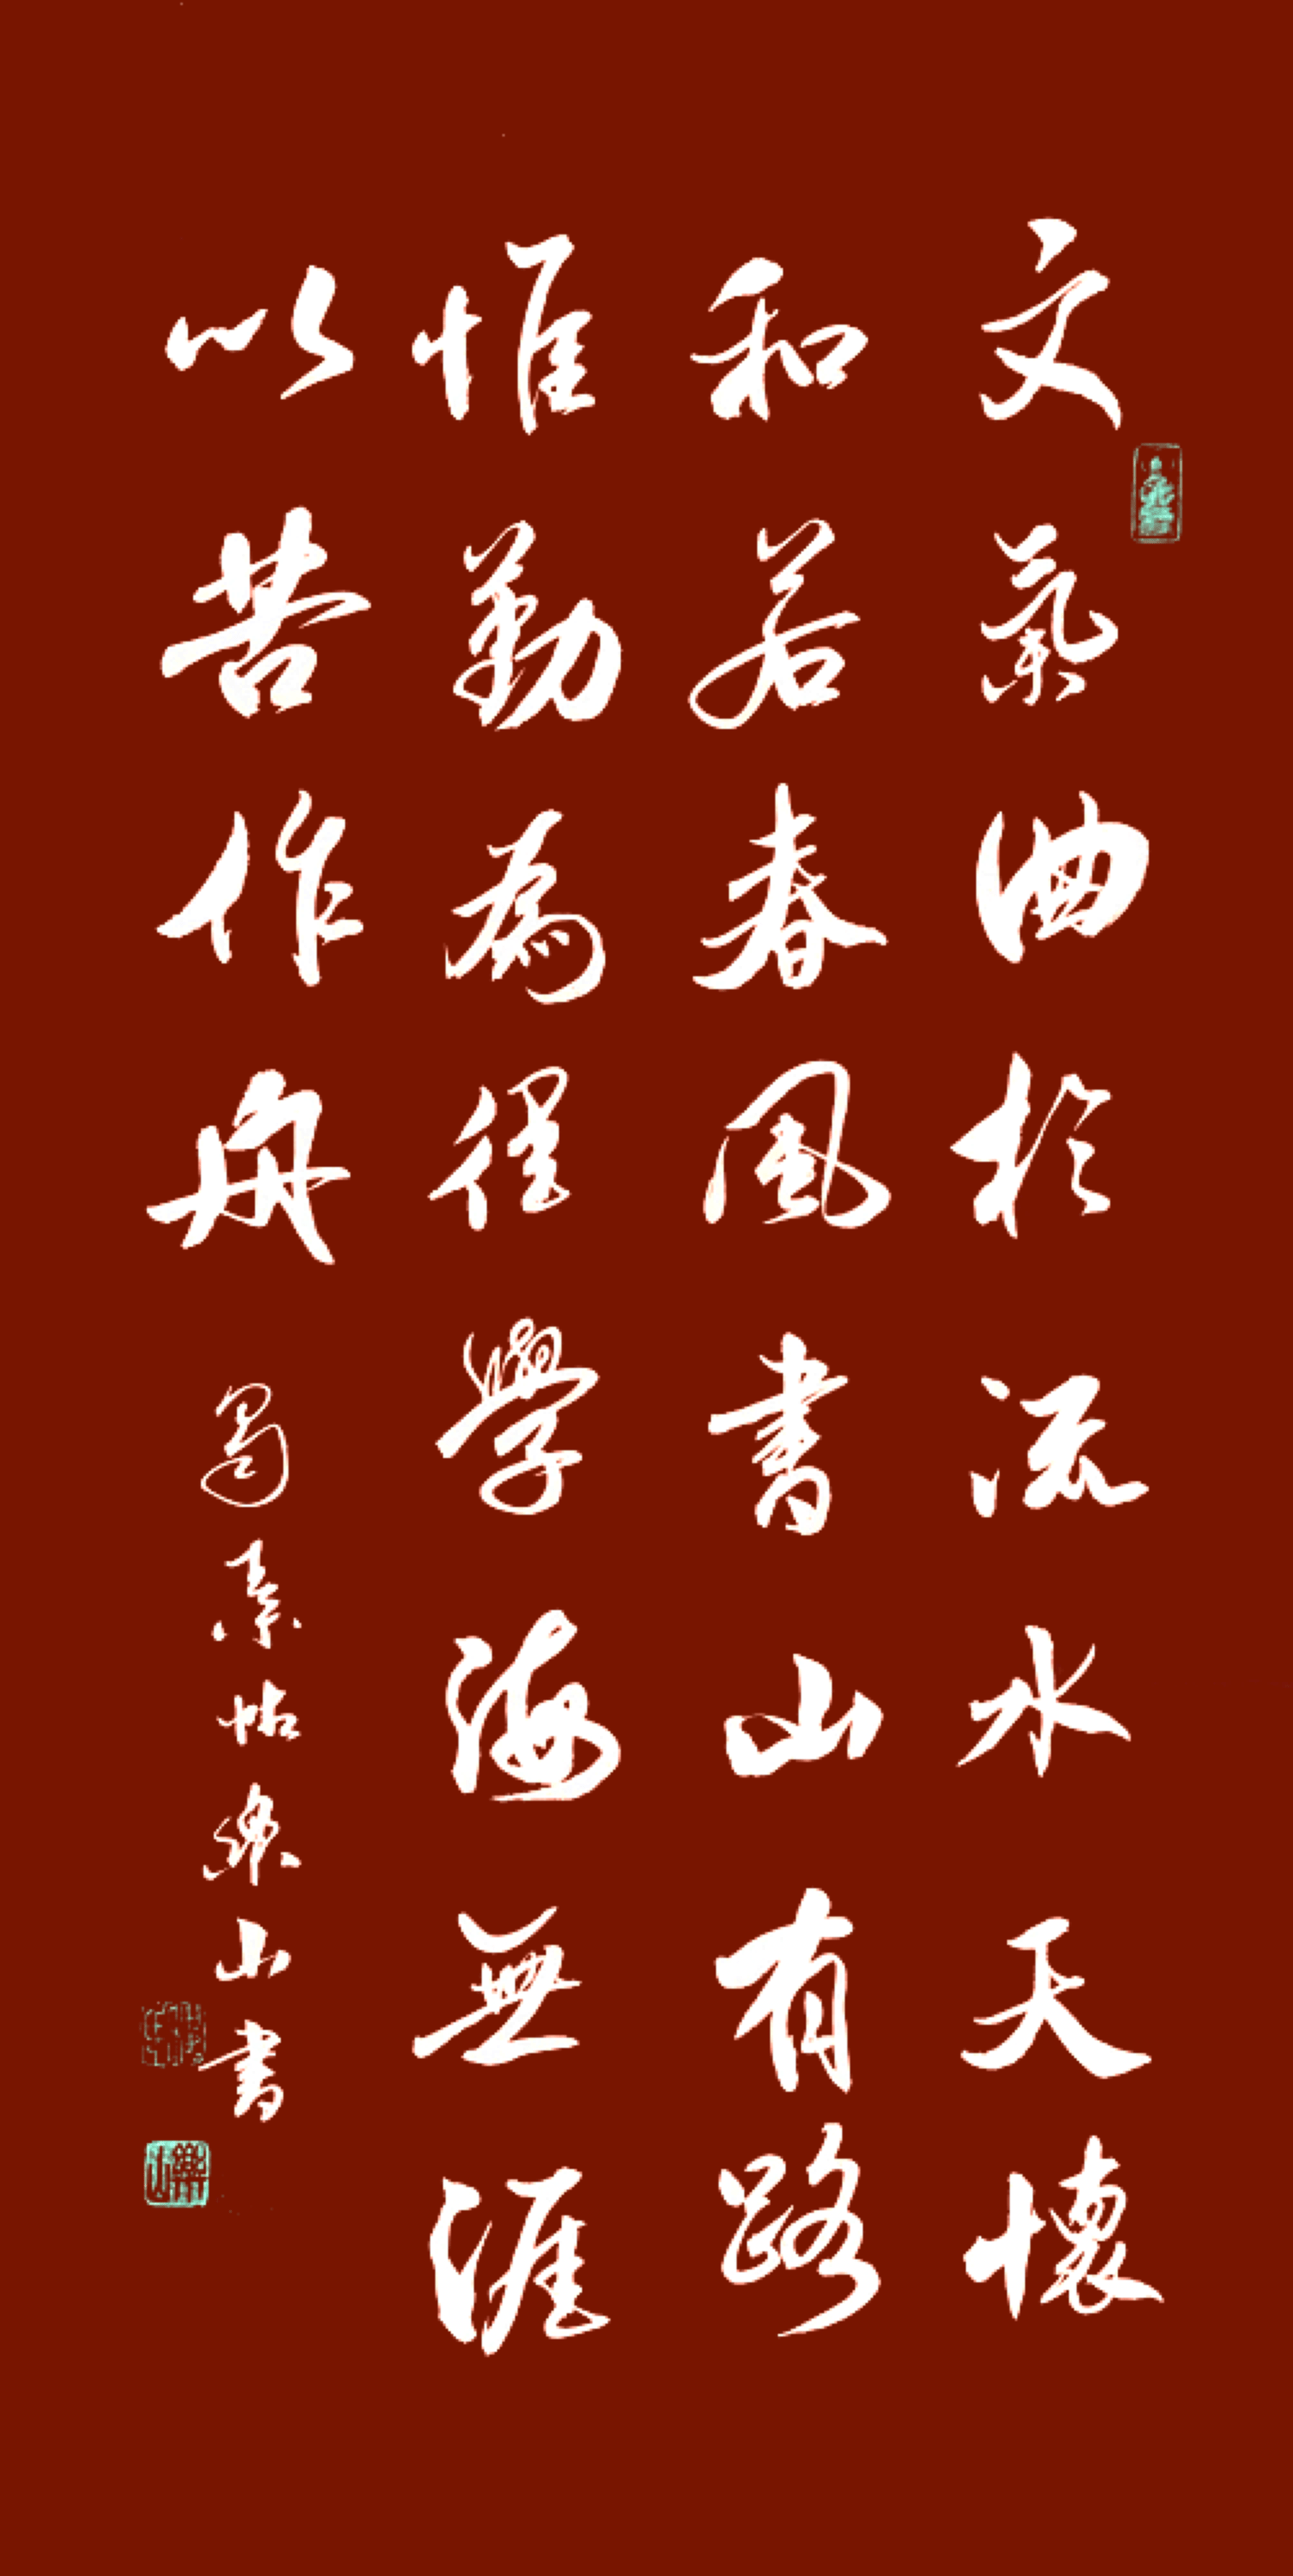 文氣曲於流水天懷
和若春風書山有路
惟勤為徑學海無涯
以苦作舟
蜀素帖樂山書
樂山